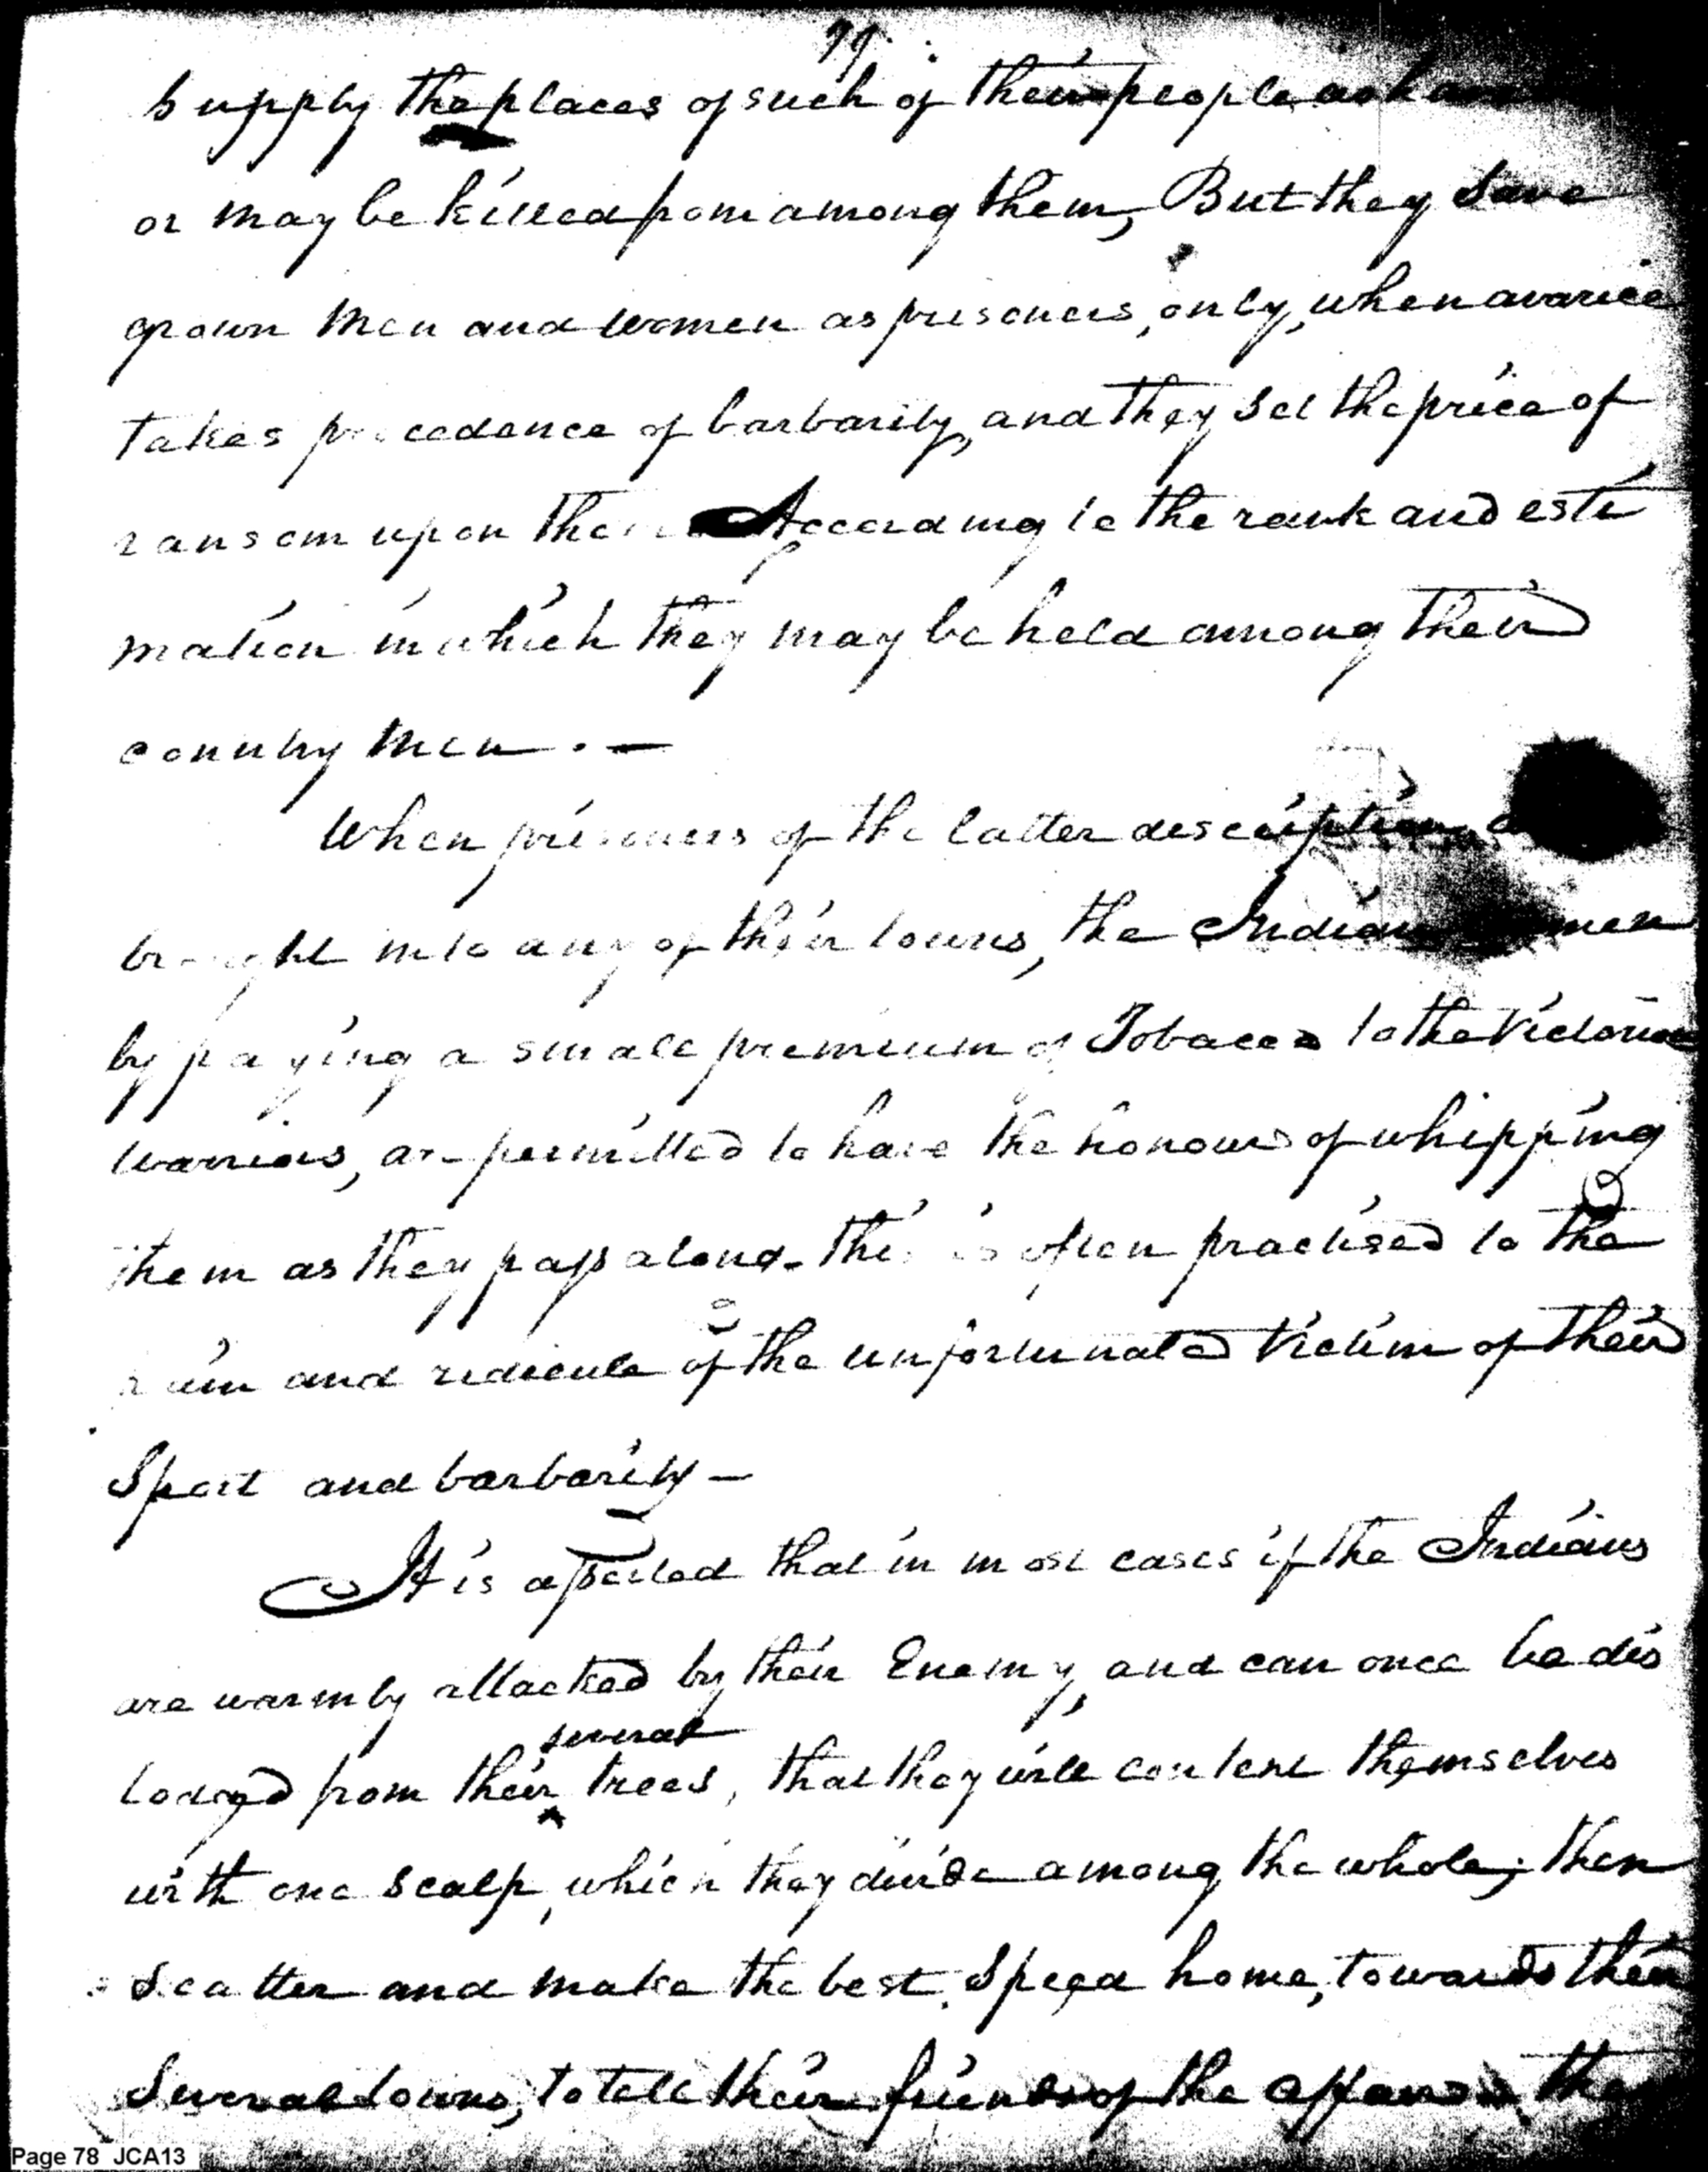 79.
Supply the places of such of their people as have
or may be killed from among them, But they Save
grown Men and women as prisoners, only, when avarice
takes precedence of barbarity, and they Set the price of
ransom upon them According to the rank and esti
mation in which they may be held among their
country Men . —
When prisoners of the latter description
brought into any of their towns, the Indian women
by paying a small premium of Tobacco to the Victorious
Warriors, are permitted to have the honour of whipping
them as they pass along - this is often practised to the
ruin and ridicule of the unfortunate Victim of their
Sport and barbarity —
It is asserted that in most cases if the Indians
are warmly attacked by their Enemy, and can once be dis
lodged from their several trees, that they will content themselves
with one scalp, which they divide among the whole; then
Scatter and make the best Speed home, towards their
Several towns, to tell their friends of the affair the
Page 78 JCA13